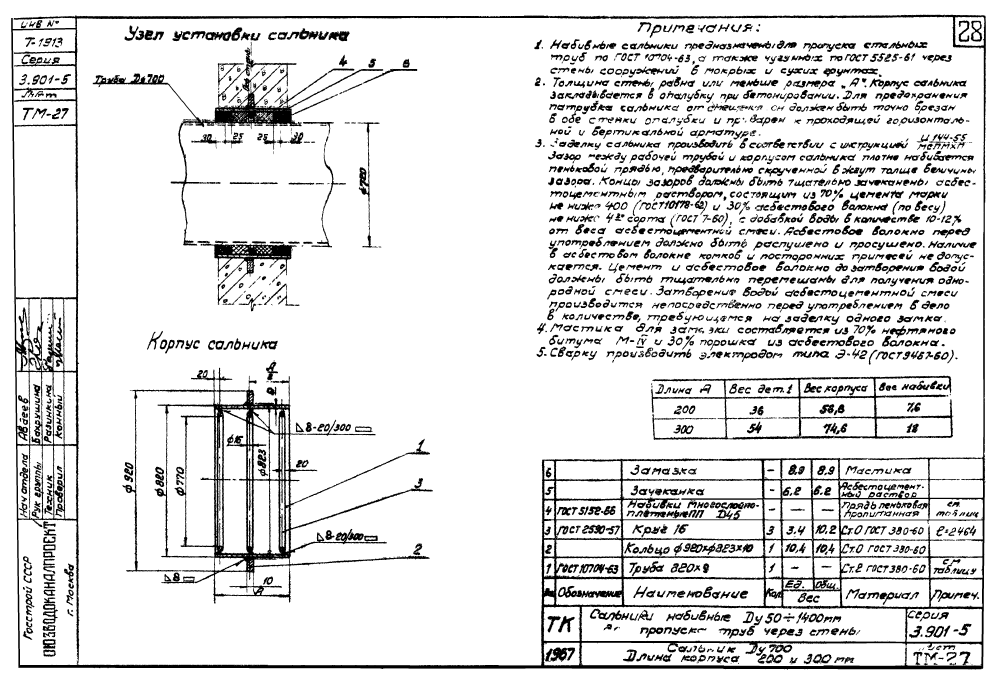 ИНВ №
Т-1913
Серия
3.901-5
Лист
ТМ-27
28
Узел установки сальника
Труба Ду700
4 5 6
30 25 25 30
ф720
Корпус сальника
А
20
8-20/300
ф16
ф920
ф820
ф770
ф823
20
1
3
8-20/300
2
8
10
А
Примечания:
1. Набивные сальники предназначены для пропуска стальных
труб по ГОСТ 10704-63, а также чугунных по ГОСТ 5525-61 через
стены сооружений в мокрых и сухих грунтах.
2. Толщина стены равна или меньше размера „А". Корпус сальника
закладывается в опалубку при бетонировании. Для предохранения
патрубка сальника от смещения он должен быть точно врезан
в обе стенки опалубки и приварен к проходящей горизонталь-
ной и вертикальной арматуре.
И 144-55
3. Заделку сальника производить в соответствии с инструкцией МСПМХП
Зазор между рабочей трубой и корпусом сальника плотно набивается
пеньковой прядью, предварительно скрученной в жгут толще величины
зазора. Концы зазоров должны быть тщательно зачеканены асбес-
тоцементным раствором, состоящим из 70% цемента марки
не ниже 400 (ГОСТ 10178-62) и 30% асбестового волокна (по весу)
не ниже 4го сорта (ГОСТ 7-60), с добавкой воды в количестве 10-12%
от веса асбестоцементной смеси. Асбестовое волокно перед
употреблением должно быть распушено и просушено. Наличие
в асбестовом волокне комков и посторонних примесей не допус-
кается. Цемент и асбестовое волокно до затворения водой
должны быть тщательно перемешаны для получения одно-
родной смеси. Затворение водой асбестоцементной смеси
производится непосредственно перед употреблением в дело
в количестве, требующемся на заделку одного замка.
4. Мастика для замазки составляется из 70% нефтяного
битума М-IV и 30% порошка из асбестового волокна.
5. Сварку производить электродом типа Э-42 (ГОСТ 9467-60).
Длина А Вес дет.1 Вес корпуса Вес набивки
200 36 56,8 7,6
300 54 74,6 18
6 Замазка - 8.9 8.9 Мастика
5 Зачеканка - 6.2 6.2 Асбестоцемент-ный раствор
4 ГОСТ 5152-66 Набивки многослойно-плетеные ПП D45 - - - Прядь пеньковая пропитанная см. таблиц
3 ГОСТ 2590-57 Круг 16 3 3.4 10.2 Ст.0 ГОСТ 380-60 ℓ=2464
2 Кольцо ф920×ф823×10 1 10,4 10,4 Ст.0 ГОСТ 380-60
1 ГОСТ 10704-63 Труба 820×9 1 - - Ст.2 ГОСТ 380-60 см таблицу
Обозначение Наименование Кол Ед. Общ. Вес Материал Примеч.
ТК Сальники набивные Ду 50÷1400мм
пропуска труб через стены
Серия
3.901-5
1967 Сальник Ду 700
Длина корпуса 200 и 300 мм
Лист
ТМ-27
Нач отдела Авдеев
Рук группы Бакрушина
Техник Разинкина
Проверил Конный
Госстрой СССР
СОЮЗВОДОКАНАЛПРОЕКТ
г. Москва